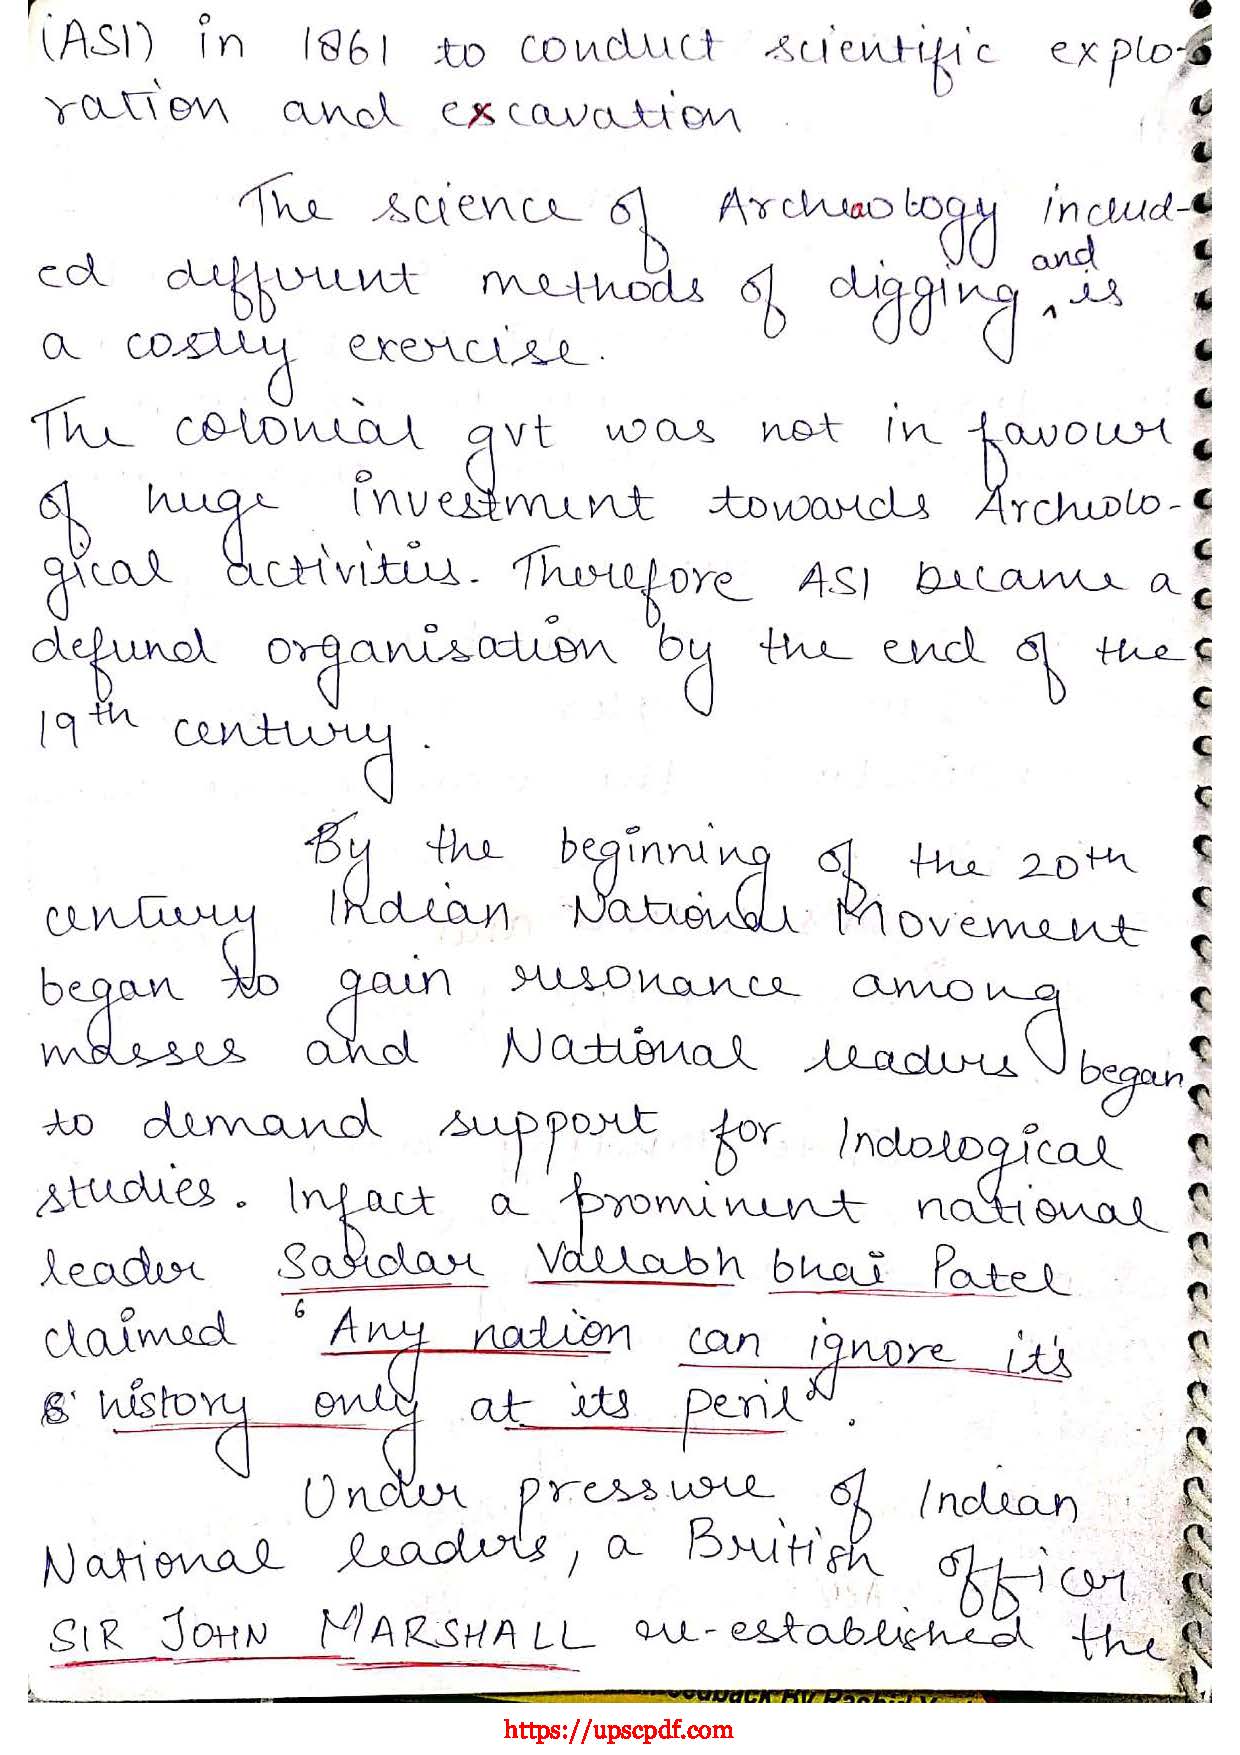 (ASI) in 1861 to conduct scientific explo-
ration and excavation.
The science of Archeaology includ-
ed different methods of digging and is
a costly exercise.
The colonial gvt was not in favour
of huge investment towards Archeolo-
gical activities. Therefore ASI became a
defund organisation by the end of the
19th century.
By the beginning of the 20th
century Indian National Movement
began to gain resonance among
masses and National leaders began
to demand support for Indological
studies. Infact a prominent national
leader Sardar Vallabh bhai Patel
claimed "Any nation can ignore it's
history only at its peril".
Under pressure of Indian
National leaders, a British officer
SIR JOHN MARSHALL re-established the
https://upscpdf.com